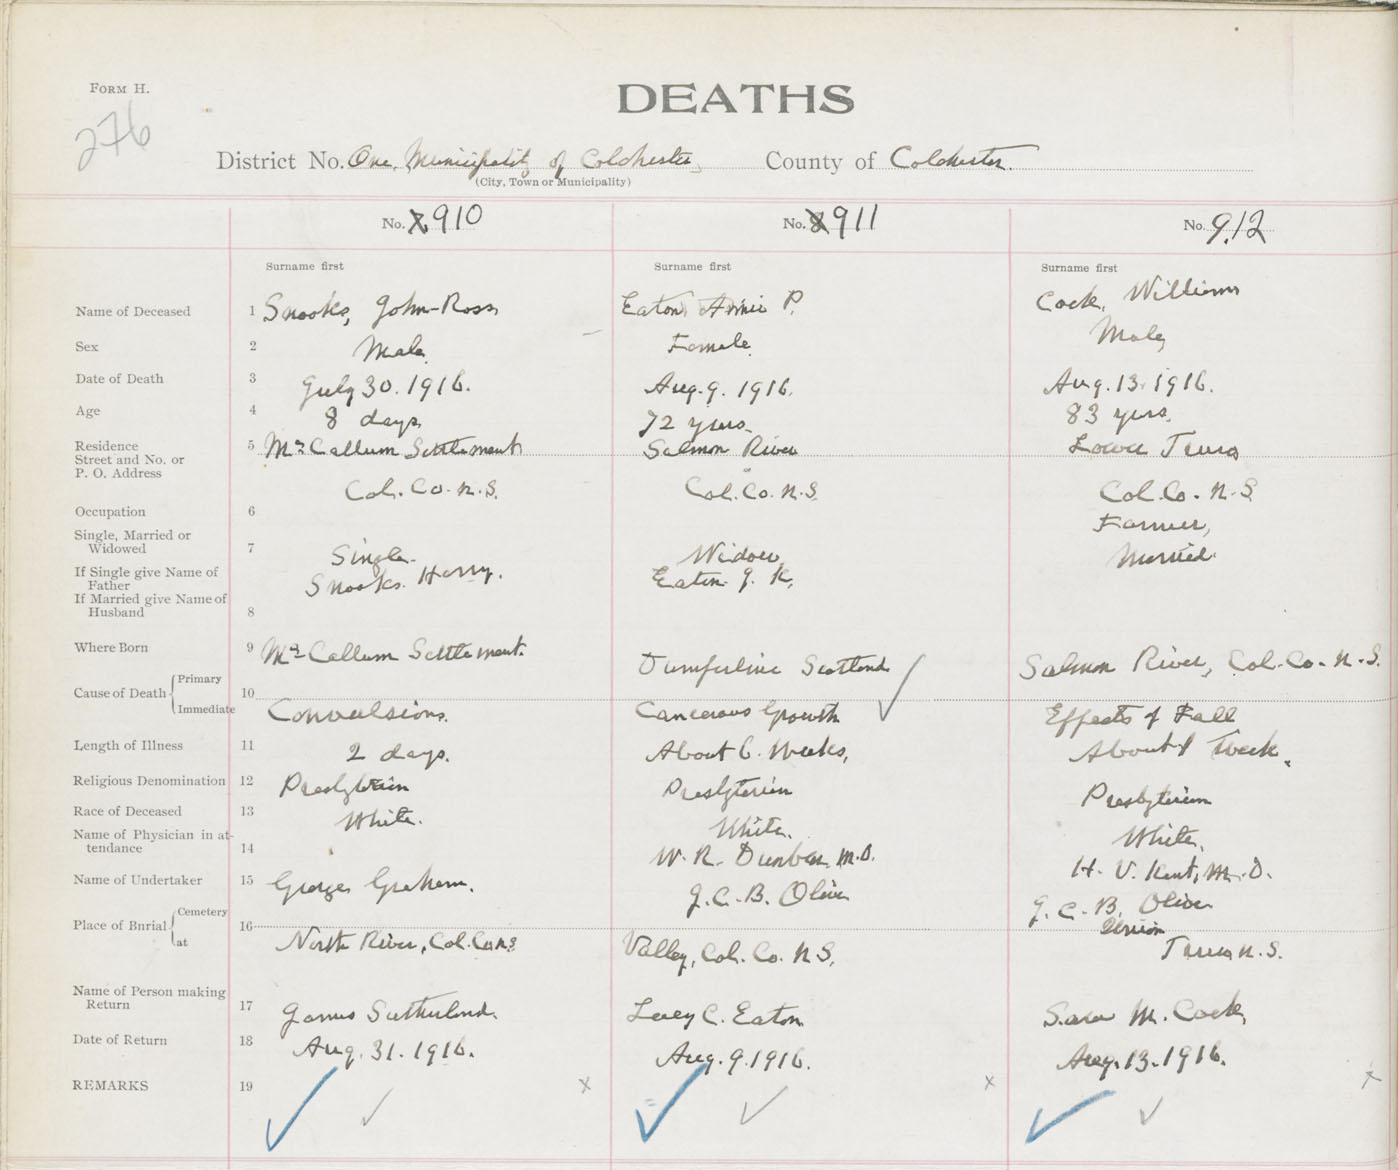 FORM H.
276
DEATHS
District No. One, Municipality of Colchester, County of Colchester.
(City, Town or Municipality)
No. 910 No. 911 No. 912
Surname first Surname first Surname first
Name of Deceased 1 Snooks, John Ross Eaton Annie P. Cock, William
Sex 2 Male Female Male
Date of Death 3 July 30. 1916. Aug. 9. 1916. Aug. 13. 1916.
Age 4 8 days 72 years 83 years
Residence 5 McCallum Settlement Salmon River Lower Truro
Street and No. or
P. O. Address Col. Co. N.S. Col. Co. N.S. Col. Co. N.S.
Occupation 6 Farmer,
Single, Married or
Widowed 7 Single Widow Married
If Single give Name of
Father Snooks. Harry. Eaton J. K.
If Married give Name of
Husband 8
Where Born 9 McCallum Settlement. Dumferline Scotland Salmon River, Col. Co. N.S.
Cause of Death Primary 10
Immediate Convulsions. Cancerous Growth Effects of Fall
Length of Illness 11 2 days. About 6 Weeks, About 1 Week.
Religious Denomination 12 Presbyterian Presbyterian Presbyterian
Race of Deceased 13 White. White. White.
Name of Physician in at-
tendance 14 W. R. Dunbar M.D. H. V. Kent, M.D.
Name of Undertaker 15 George Graham. J. C. B. Oliver J. C. B. Oliver
Place of Burial Cemetery 16
at North River, Col. Co. N.S. Valley, Col. Co. N.S. Truro N.S.
Name of Person making
Return 17 James Sutherland. Lucy C. Eaton Sara M. Cock,
Date of Return 18 Aug. 31. 1916. Aug. 9. 1916. Aug. 13. 1916.
REMARKS 19 x x x